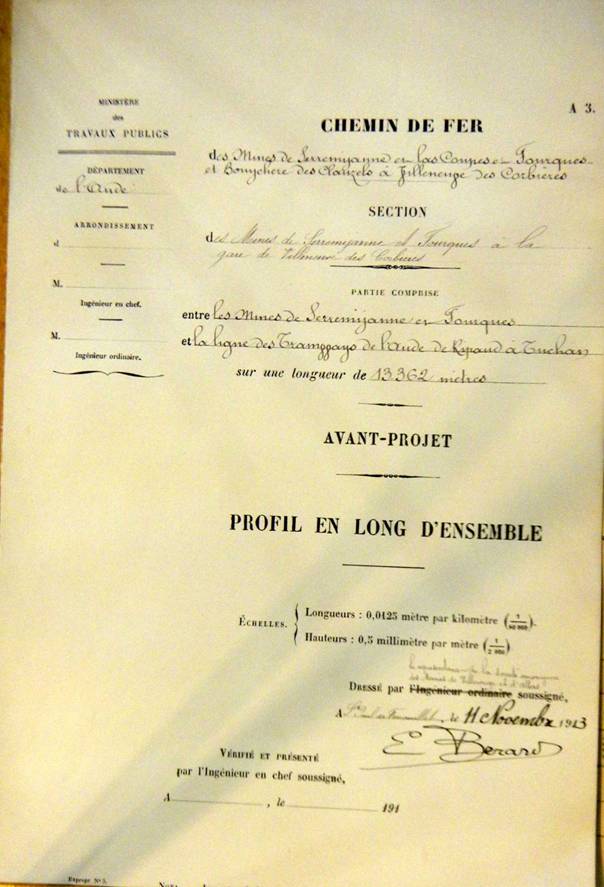 A 3.
MINISTÈRE
des
TRAVAUX PUBLICS
DÉPARTEMENT
de l'Aude
ARRONDISSEMENT
d
M.
Ingénieur en chef.
M.
Ingénieur ordinaire.
CHEMIN DE FER
des Mines de Serremijanne et Las Coupes et Fourques
et Bouychere des Clauzels à Villeneuve des Corbières
SECTION
des Mines de Serremijanne et Fourques à la
gare de Villeneuve des Corbières
PARTIE COMPRISE
entre les Mines de Serremijanne et Fourques
et la ligne des Tramways de l'Aude de Ripaud à Tuchan
sur une longueur de 13362 mètres
AVANT-PROJET
PROFIL EN LONG D'ENSEMBLE
ÉCHELLES.
Longueurs : 0,0125 mètre par kilomètre (1/80 000).
Hauteurs : 0,5 millimètre par mètre (1/2 000)
de la Société
des Mines de Villeneuve et d'Albas
DRESSÉ par l'Ingénieur ordinaire soussigné,
A St Paul de Fenouillet, le 11 Novembre 1913
E Berard
VÉRIFIÉ ET PRÉSENTÉ
par l'Ingénieur en chef soussigné,
A , le 191
Expropr. N° 5.